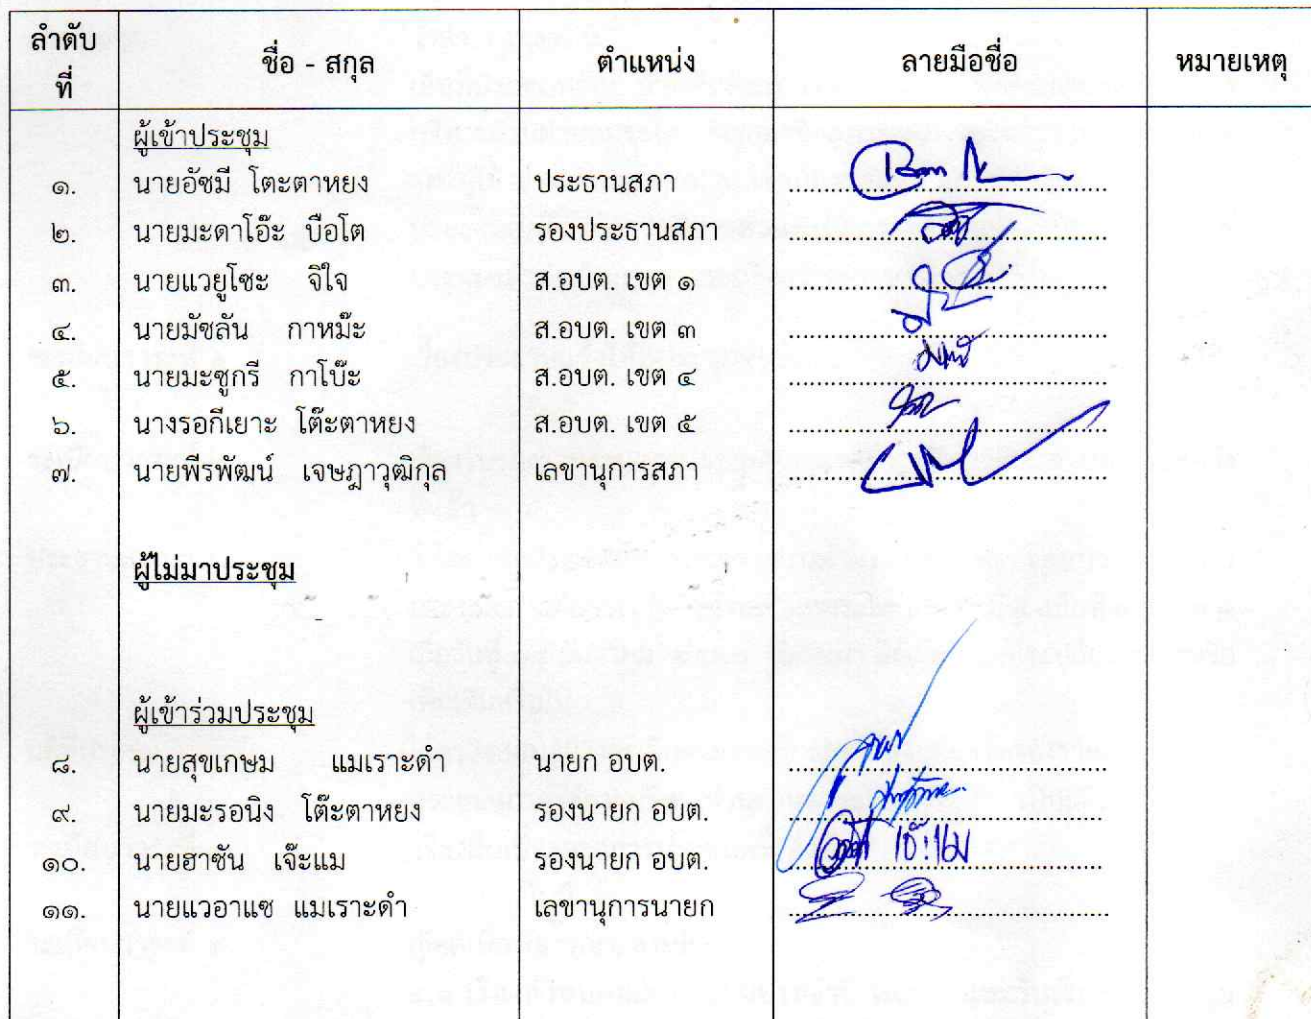 ลำดับที่ ชื่อ - สกุล ตำแหน่ง ลายมือชื่อ หมายเหตุ
ผู้เข้าประชุม
๑. นายอัซมี โตะตาหยง ประธานสภา
๒. นายมะดาโอ๊ะ บือโต รองประธานสภา
๓. นายแวยูโซะ จิใจ ส.อบต. เขต ๑
๔. นายมัซลัน กาหม๊ะ ส.อบต. เขต ๓
๕. นายมะซูกรี กาโบ๊ะ ส.อบต. เขต ๔
๖. นางรอกีเยาะ โต๊ะตาหยง ส.อบต. เขต ๕
๗. นายพีรพัฒน์ เจษฎาวุฒิกุล เลขานุการสภา
ผู้ไม่มาประชุม
ผู้เข้าร่วมประชุม
๘. นายสุขเกษม แมเราะดำ นายก อบต.
๙. นายมะรอนิง โต๊ะตาหยง รองนายก อบต.
๑๐. นายฮาซัน เจ๊ะแม รองนายก อบต. เจ๊ะแม
๑๑. นายแวอาแซ แมเราะดำ เลขานุการนายก